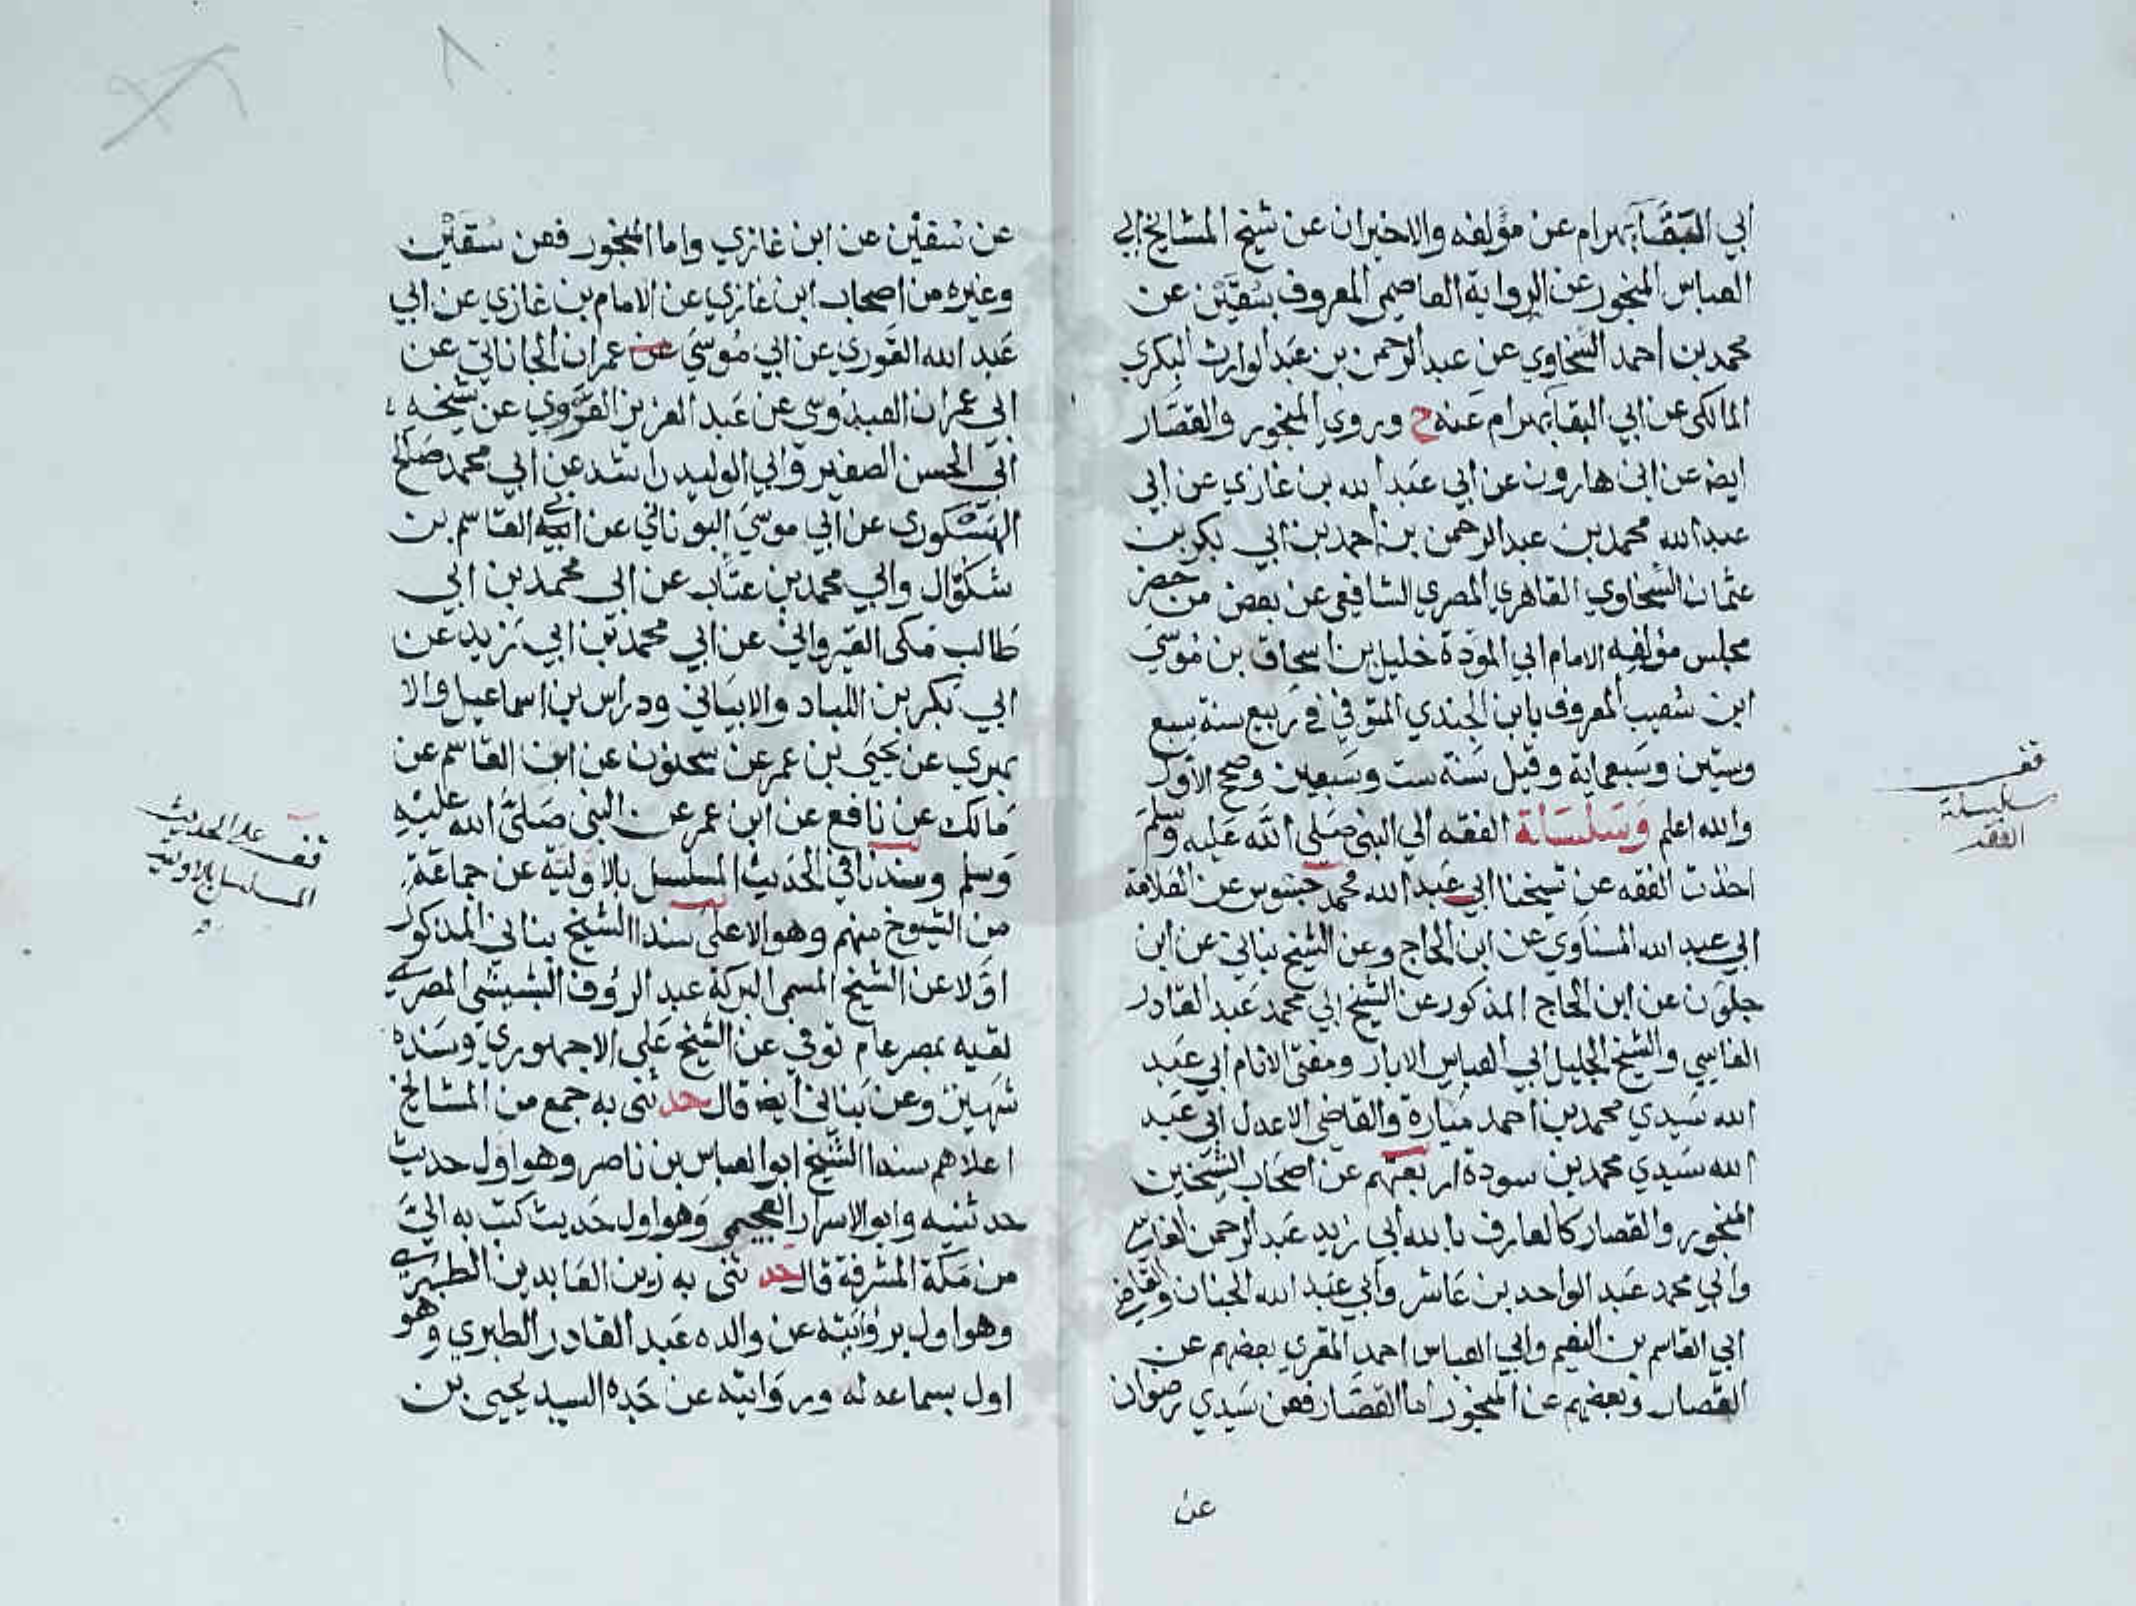 ابي البقا بهرام عن مؤلفه والاخيران عن شيخ المشايخ ابي
العباس المنجور عن الرواية العاصمي المعروف بسُقَّيْن عن
محمد بن احمد السخاوي عن عبد الرحمن بن عبد الوارث البكري
المالكي عن ابي البقا بهرام عنه ح وروي المنجور والقصار
ايضا عن ابن هارون عن ابي عبد الله بن غازي عن ابي
عبد الله محمد بن عبد الرحمن بن احمد بن ابي بكر بن
عثمان السخاوي القاهري المصري الشافعي عن بعض من حضر
مجلس مؤلفه الامام ابي المودة خليل بن اسحاق بن موسي
ابن شعيب المعروف بابن الجندي المتوفي في ربيع سنة سبع
وستين وسبعماية وقيل سنة ست وسبعين وصح الاول
والله اعلم وسلسلة الفقه الي النبي صلي الله عليه وسلم
اخذت الفقه عن شيخنا ابي عبد الله محمد جسوس عن العلامة
ابي عبد الله المسناوي عن ابن الحاج وعن الشيخ بناني عن ابن
جلون عن ابن الحاج المذكور عن الشيخ ابي محمد عبد القادر
الفاسي والشيخ الجليل ابي العباس الابار ومفتي الانام ابي عبد
الله سيدي محمد بن احمد ميارة والقاضي الاعدل ابي عبد
الله سيدي محمد بن سودة اربعتهم عن اصحاب الشيخين
المنجور والقصار كالعارف بالله ابي زيد عبد الرحمن الفاسي
وابي محمد عبد الواحد بن عاشر وابي عبد الله الجنان والقاضي
ابي القاسم بن النعيم وابي العباس احمد المقري بعضهم عن
القصار وبعضهم عن المنجور اما القصار فعن سيدي رضوان
عن
قف
سلسلة
الفقه
عن سقين عن ابن غازي واما المنجور فعن سقين
وغيره من اصحاب ابن غازي عن الامام بن غازي عن ابي
عبد الله القوري عن ابي موسي عن عمران الجاناتي عن
ابي عمران العبدوسي عن عبد العزيز القروي عن شيخه
ابي الحسن الصغير وابي الوليد راشد عن ابي محمد صالح
الهسكوري عن ابي موسي البوناني عن ابي القاسم بن
شكوال وابي محمد بن عتاب عن ابي محمد بن ابي
طالب مكي القيرواني عن ابي محمد بن ابي زيد عن
ابي بكر بن اللباد والابياني ودراس بن اسماعيل والا
بهري عن يحيي بن عمر عن سحنون عن ابن القاسم عن
مالك عن نافع عن ابن عمر عن النبي صلى الله عليه
وسلم وسندنا في الحديث المسلسل بالاولية عن جماعة
من الشيوخ منهم وهو الاعلى سندا الشيخ بناني المذكور
اولا عن الشيخ المسمي البركة عبد الرؤف البشبشي المصري
لقيه بمصر عام توفي عن الشيخ علي الاجهوري وسنده
شهير وعن بناني ايضا قال حدثني به جمع من المشايخ
اعلاهم سندا الشيخ ابو العباس بن ناصر وهو اول حديث
حدثنيه وابو الاسرار العجيمي وهو اول حديث كتب به اليّ
من مكة المشرفة قال حدثني به زين العابدين الطبري
وهو اول بروايته عن والده عبد القادر الطبري وهو
اول بسماعه له وروايته عن جده السيد يحيي بن
قف على الحديث
المسلسل بالاولية
٨